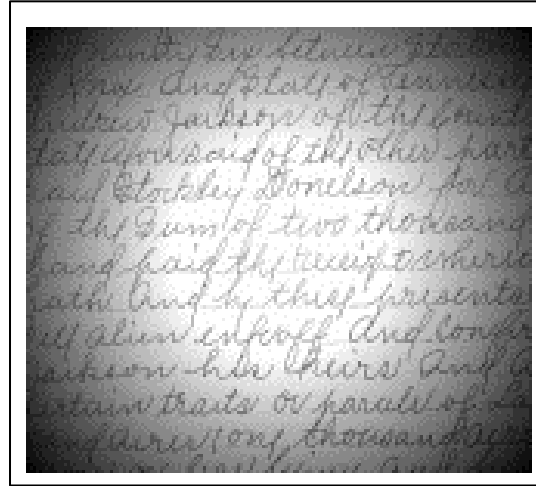 between Stock
Knox And State of Tennes
Andrew Jackson of the Count
tate aforesaid of the other part
aid Stockley Donelson for
f the Sum of two thousand
hand paid the receipt
hath And by these presents
ell alien enfeoff And Confir
ackson his heirs And
ertain traits or parals of La
thousand acres